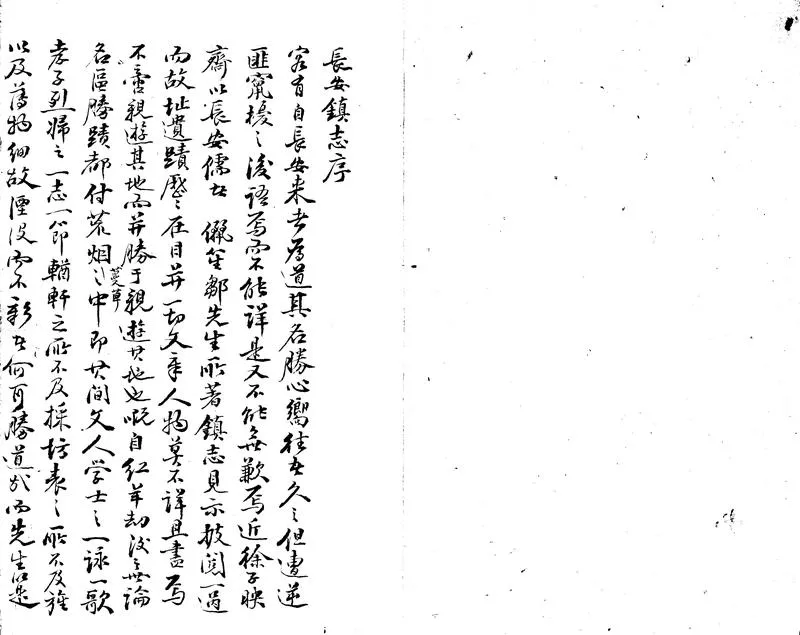 長安鎮志序
客有自長安来者為道其名勝心嚮往者久之但遭逆
匪竄擾之後語焉而不能詳是又不能無歉焉近徐子映
齋以長安儒士 儷笙鄒先生所著鎮志見示披閱一過
而故址遺蹟歷歷在目并一切文章人物莫不詳且盡焉
不啻親遊其地而并勝于親遊其地也嘅自紅羊劫後無論
名區勝蹟都付荒烟蔓草之中即其間文人学士之一詠一歌
孝子烈婦之一志一節輶軒之所不及採坊表之所不及旌
以及舊物細故湮没而不彰者何可勝道哉而先生以是